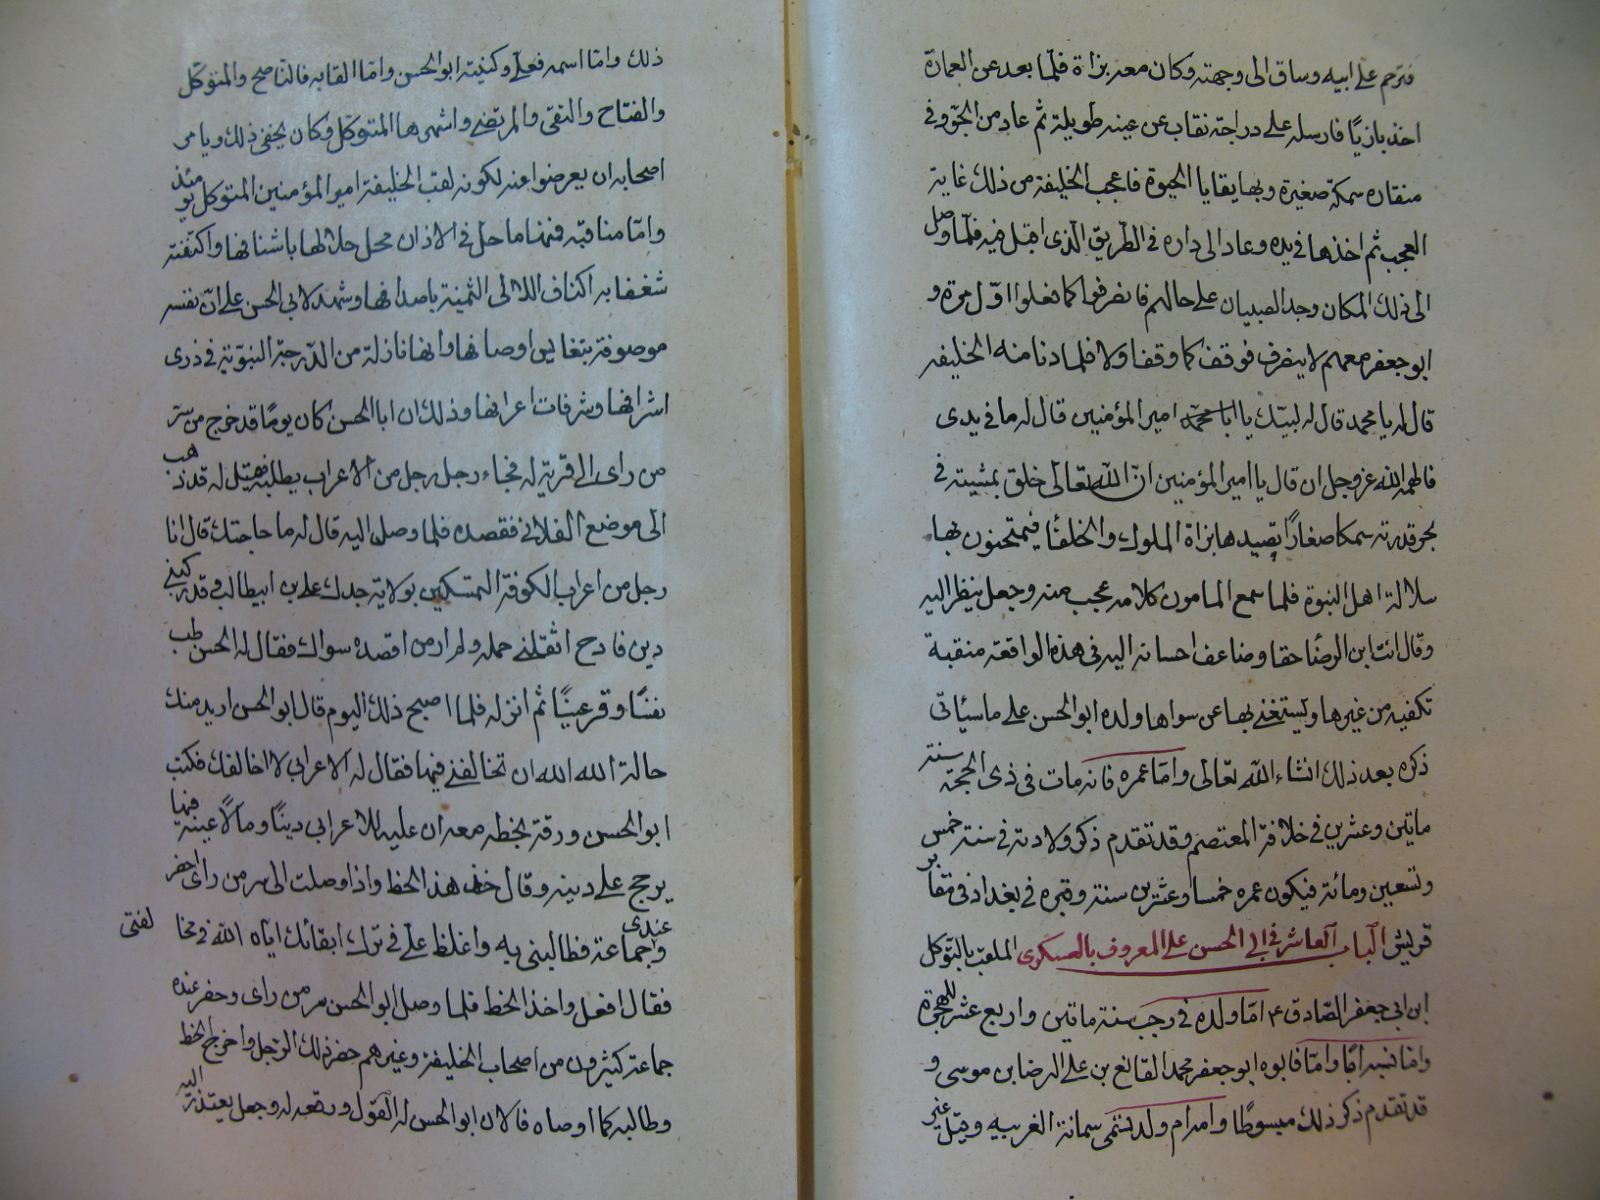 فترحم على ابيه وساق الى وجهته وكان معه بزاة فلما بعد عن العمارة
اخذ بازيًا فارسله على دراجة نقاب عن عينه طويلة ثم عاد من الجو وفي
منقاره سمكة صغيرة وبها بقايا الحيوة فاعجب الخليفة من ذلك غاية
العجب ثم اخذها في يده وعاد الى داره في الطريق الذى اقبل فيه فلما وصل
الى ذلك المكان وجد الصبيان على حالهم فانصرفوا كما فعلوا اول مرة و
ابو جعفر معهم لا ينصرف فوقف كما وقف اولا فلما دنا منه الخليفة
قال له يا محمد قال له لبيك يا امير المؤمنين قال له ما في يدى
فالهمه الله عز وجل ان قال يا امير المؤمنين ان الله تعالى خلق بمشيته في
بحر قدرته سمكا صغارًا يصيدها بزاة الملوك والخلفا فيمتحنون بها
سلالة اهل النبوة فلما سمع المامون كلامه عجب منه وجعل ينظر اليه
وقال انت ابن الرضا حقا وضاعف احسانه اليه في هذه الواقعة منقبة
تكفيه من غيرها ويستغنى بها عن سواها ولده ابو الحسن على ما سيأتى
ذكره بعد ذلك انشاء الله تعالى واما عمره فانه مات في ذى الحجة سنة
ماتين وعشرين في خلافة المعتصم وقد تقدم ذكر ولادته في سنة خمس
وتسعين ومائة فيكون عمره خمسا وعشرين سنة وقبره في بغداد في مقابر
قريش الباب العاشر في ابى الحسن على المعروف بالعسكرى الملقب بالتوكل
ابن ابى جعفر الصادق ع اما ولده في رجب سنة ماتين واربع عشر للهجرة
واما نسبه ابًا وامًا فابوه ابو جعفر محمد القانع بن على الرضا بن موسى و
قد تقدم ذكر ذلك مبسوطًا وام ام ولد تسمى سمانة الغربيه وقيل غير
ذلك واما اسمه فعلى وكنيته ابو الحسن واما القابه فالناصح والمتوكل
والفتاح والنقى والمرتضى واشهرها المتوكل وكان يخفى ذلك ويامر
اصحابه ان يعرضوا عنه لكونه لقب الخليفة امير المؤمنين المتوكل يومئذ
واما مناقبه فمنها ما حل في الاذان محل حلالها باشنافها واكتفته
شغفا به اكناف اللالى الثمينة باصدافها وشهد لابى الحسن على ان نفسه
موصوفة بنفايس اوصافها وانها نازلة من الدرجة النبوية في ذرى
اشرافها وشرفات اعرافها وذلك ان ابا الحسن كان يومًا قد خرج من سر
من راى الى قرية له فجاء رجل رجل من الاعراب يطلبه فقيل له قد ذهب
الى موضع الفلانى فقصده فلما وصل اليه قال له ما حاجتك قال انا
رجل من اعراب الكوفة المتمسكين بولاية جدك على بن ابيطالب وقد ركبنى
دين فادح اثقلنى حمله ولم ار من اقصده سواك فقال له الحسن طب
نفسًا وقر عينًا ثم انزله فلما اصبح ذلك اليوم قال ابو الحسن اريد منك
حالة الله الله ان تخالفنى فيها فقال له الاعرابى لا اخالفك فكتب
ابو الحسن ورقة بخطه معه ان عليه للاعرابى دينًا ومالًا عينه فيها
يرجح على دينه وقال خذ هذا الخط واذا وصلت الى سر من راى احضر
عندى وجماعة فطالبنى به واغلظ على في ترك ابقائك اياه الله في مخالفتى
فقال افعل واخذ الخط فلما وصل ابو الحسن سر من راى وحضر عنده
جماعة كثيرون من اصحاب الخليفة وغيرهم حضر ذلك الرجل واخرج الخط
وطالبه كما اوصاه فالان ابو الحسن له القول ورفعه له وجعل يعتذر اليه